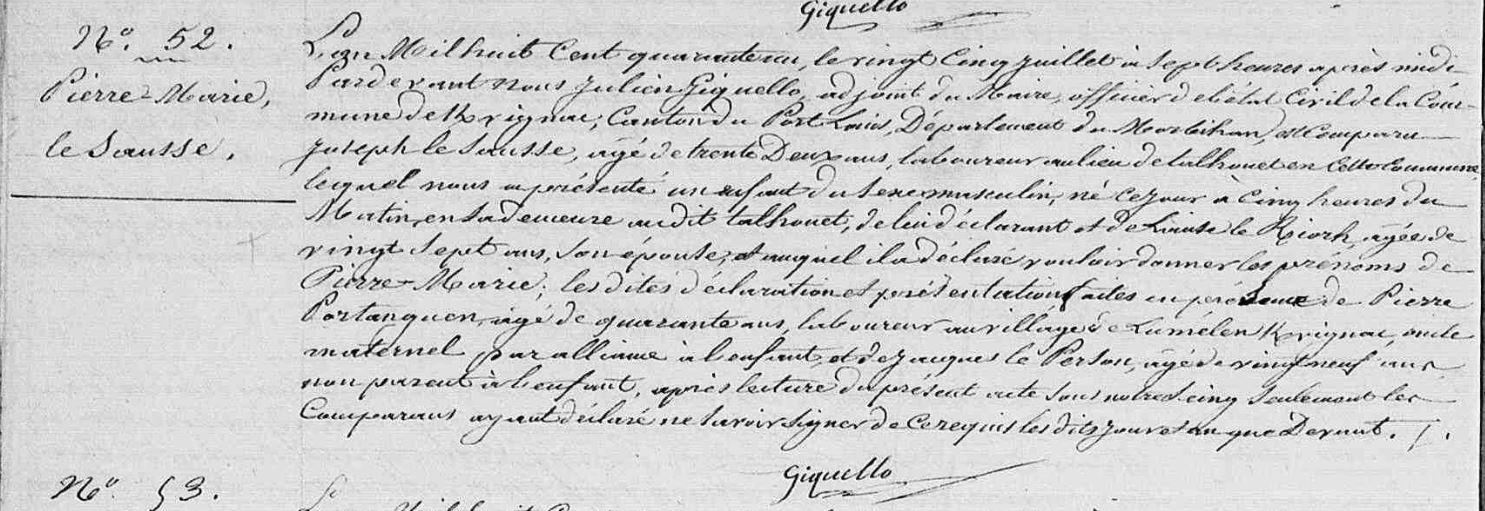 Giquello
N.o 52.
Pierre-Marie,
le Sausse.
L'an Mil huit Cent quarante un, le vingt Cinq juillet à sept heures après midi
Pardevant nous Julien Giquello, adjoint du Maire, officier de l'état Civil de la Com-
mune de Krvignac, Canton du Port Louis, Département du Morbihan, est Comparu
Joseph le Sausse, agé de trente Deux ans, laboureur au lieu de talhouet en Cette Commune,
lequel nous a présenté un enfant du sexe masculin, né ce jour à Cinq heures du
Matin, en sa demeure au dit talhouet, de lui déclarant et de Louise le Riorh, agée de
vingt sept ans, son épouse, et auquel il a déclaré vouloir donner les prénoms de
Pierre-Marie; les dites déclaration et présentation faites en présence de Pierre
Portanguen, agé de quarante ans, laboureur au village de Lamélen Krvignac, oncle
maternel par alliance à l'enfant, et de Jacques le Person, agé de vingt neuf ans,
non parent à l'enfant, après lecture du présent acte sous notre seing seulement les
Comparans ayant déclaré ne savoir signer de ce requis les dits jour et an que Devant. /.
Giquello
N.o 53.